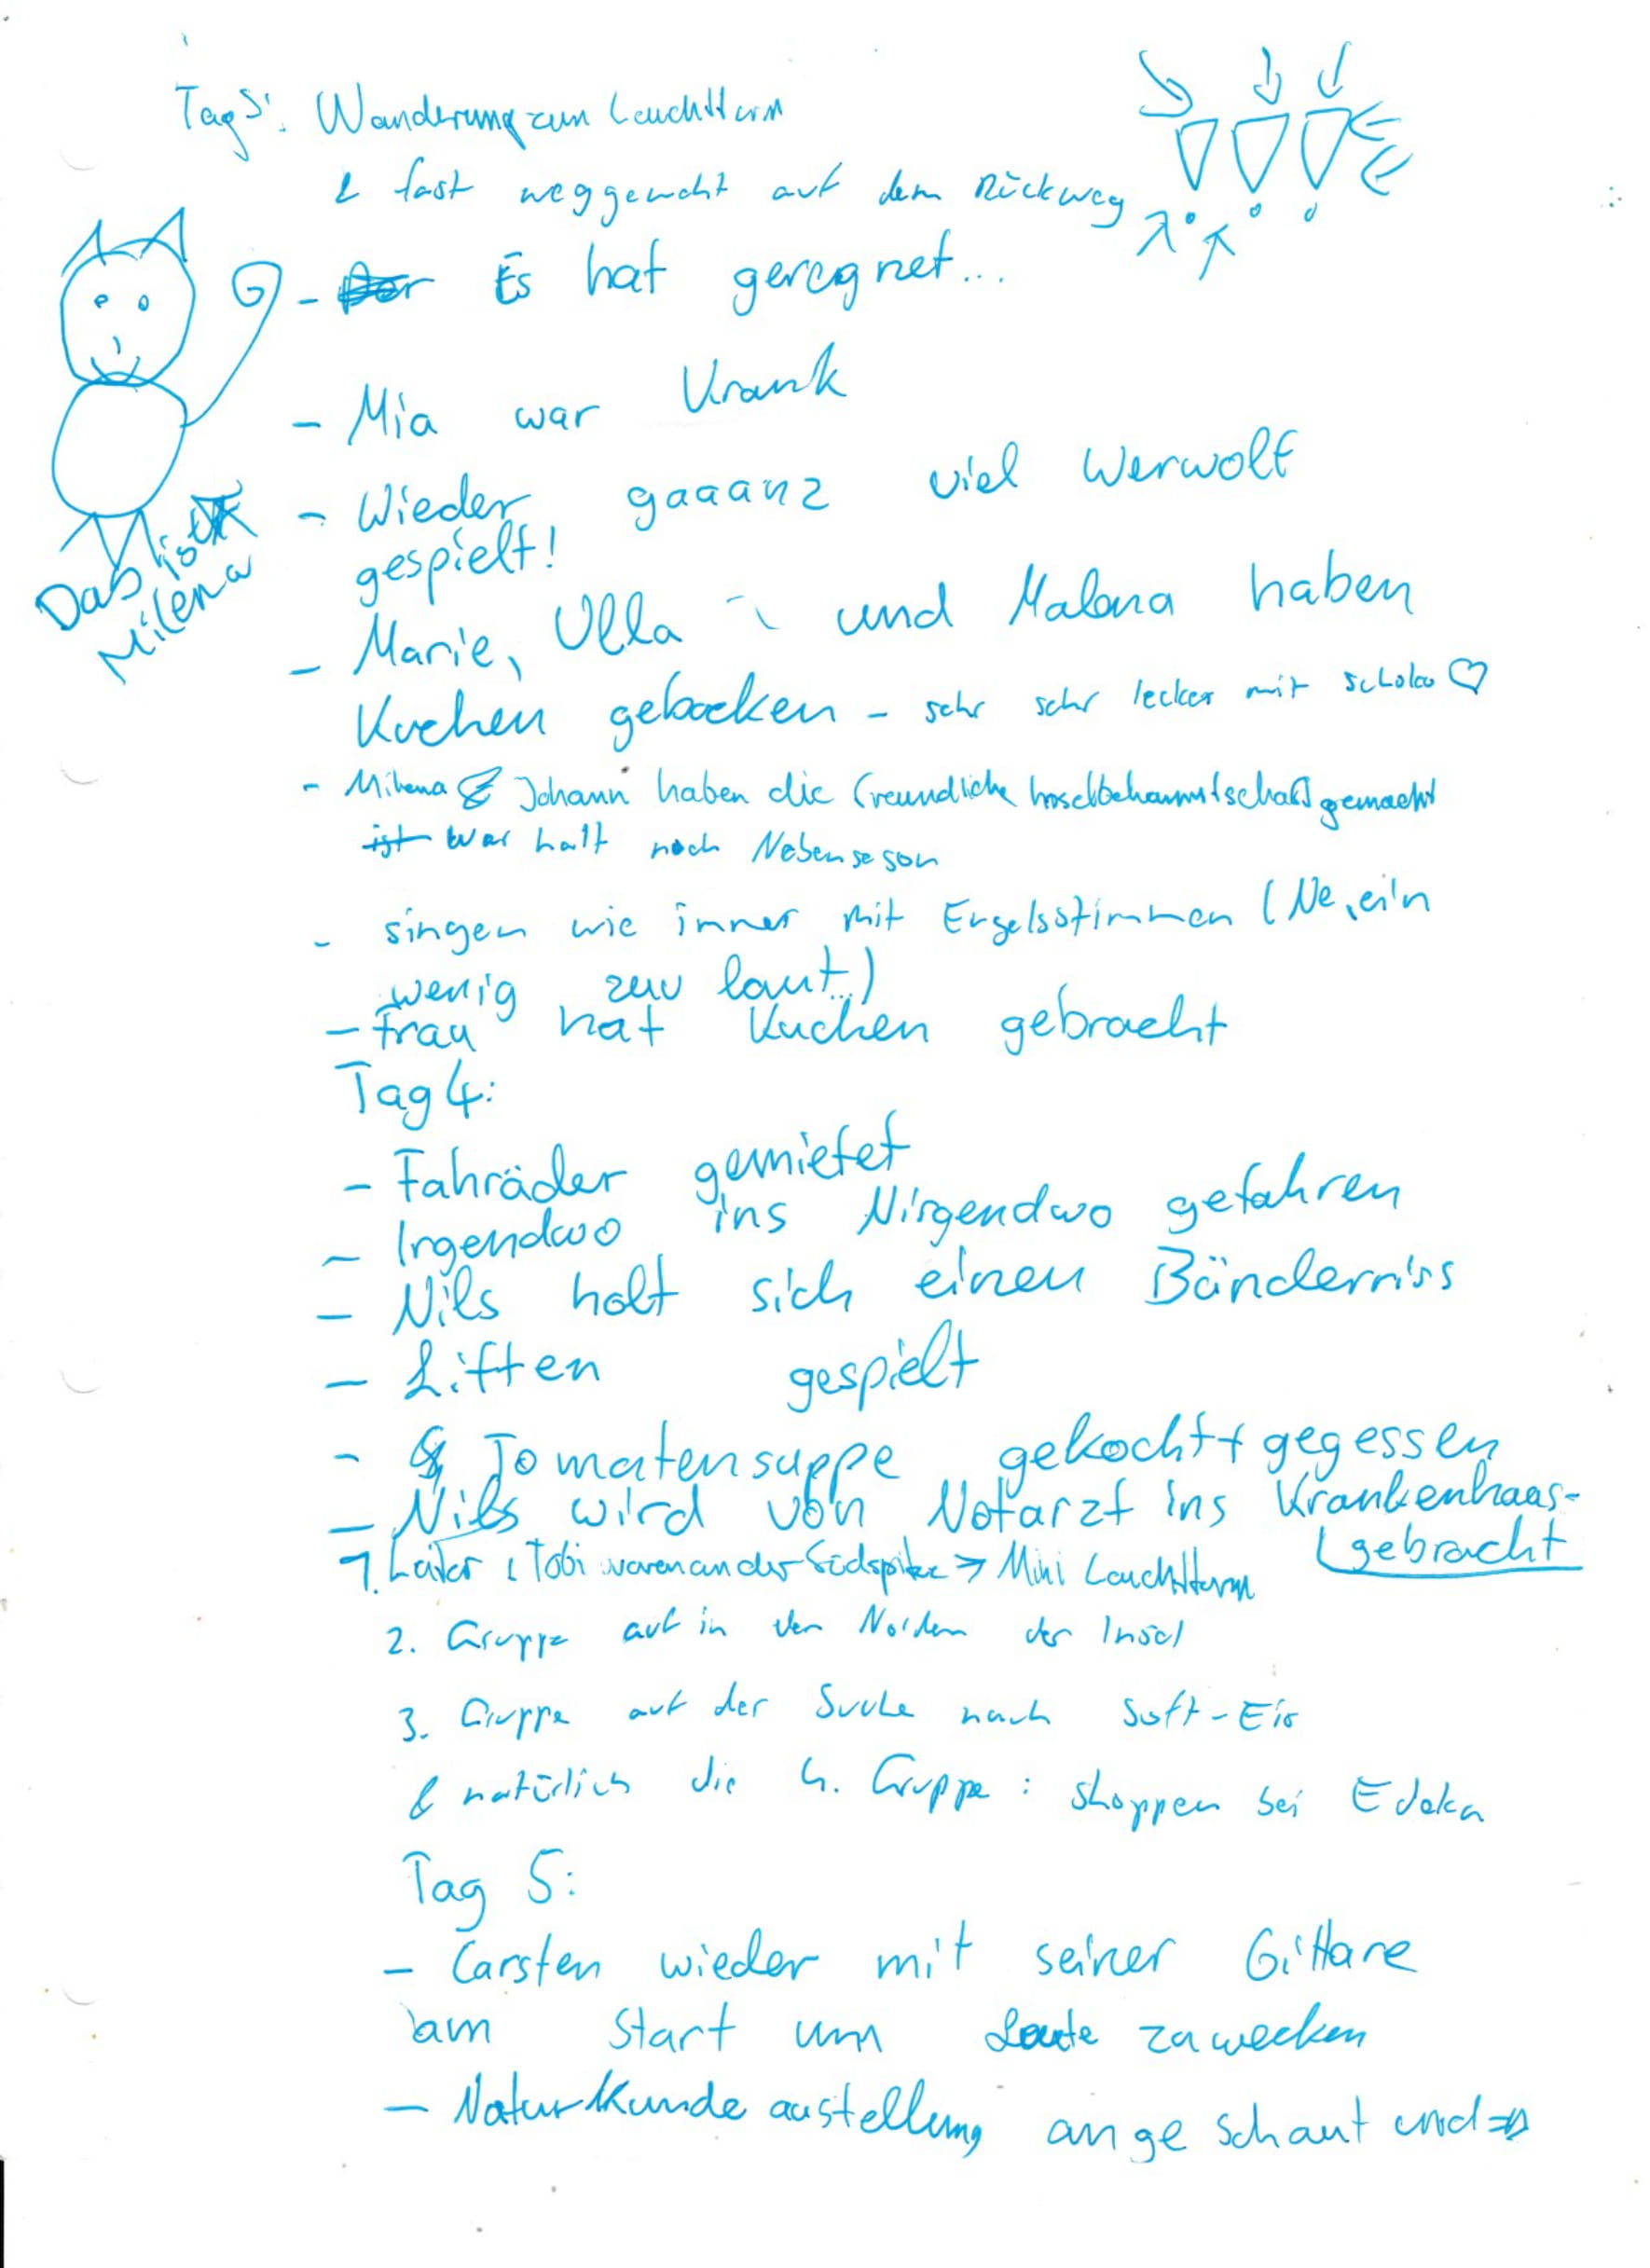 Tag 3: Wanderung zum Leuchtturm
& fast weggeweht auf dem Rückweg
- Der Es hat geregnet...
- Mia war Krank
- Wieder gaaanz viel Werwolf
gespielt!
- Marie, Ulla und Malena haben
Kuchen gebacken - sehr sehr lecker mit Schoko ♡
- Milena & Johann haben die freundliche Inselbekanntschaft gemacht
ist war halt noch Nebenseson
- singen wie immer mit Engelsstimmen (Ne, ein
wenig zuu laut..)
- Frau hat Kuchen gebracht
Das ist
Milena
Tag 4:
- Fahrräder gemietet
- Irgendwo ins Nirgendwo gefahren
- Nils holt sich einen Bänderriss
- Liften gespielt
- Tomatensuppe gekocht + gegessen
- Nils wird von Notarzt ins Krankenhaus-
gebracht
1. Leiter & Tobi waren an der Südspitze → Mini Leuchtturm
2. Gruppe auf in den Norden der Insel
3. Gruppe auf der Suche nach Soft-Eis
& natürlich die 4. Gruppe: shoppen bei Edeka
Tag 5:
- Carsten wieder mit seiner Gittare
am Start um Leute zu wecken
- Naturkunde austellung angeschaut und ⇒